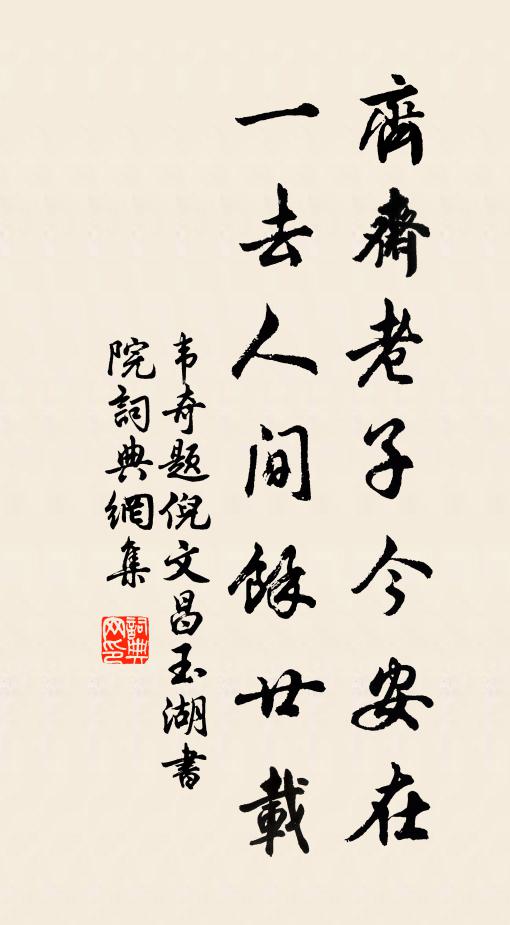 齊齋老子今安在
一去人間餘廿載
韦奇题倪文昌玉湖書
院詞典網集
詞典
网印